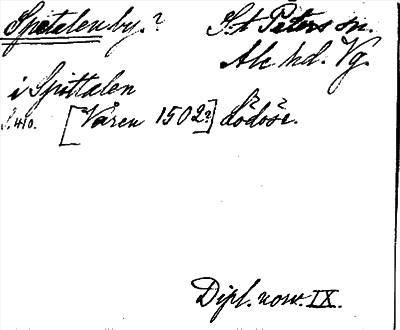 Spetalen by.? S:t Peters sn.
Ale hd. Vg.
i Spittalen
S. 410. [Våren 1502?] Lödöse.
Dipl. norv. IX.